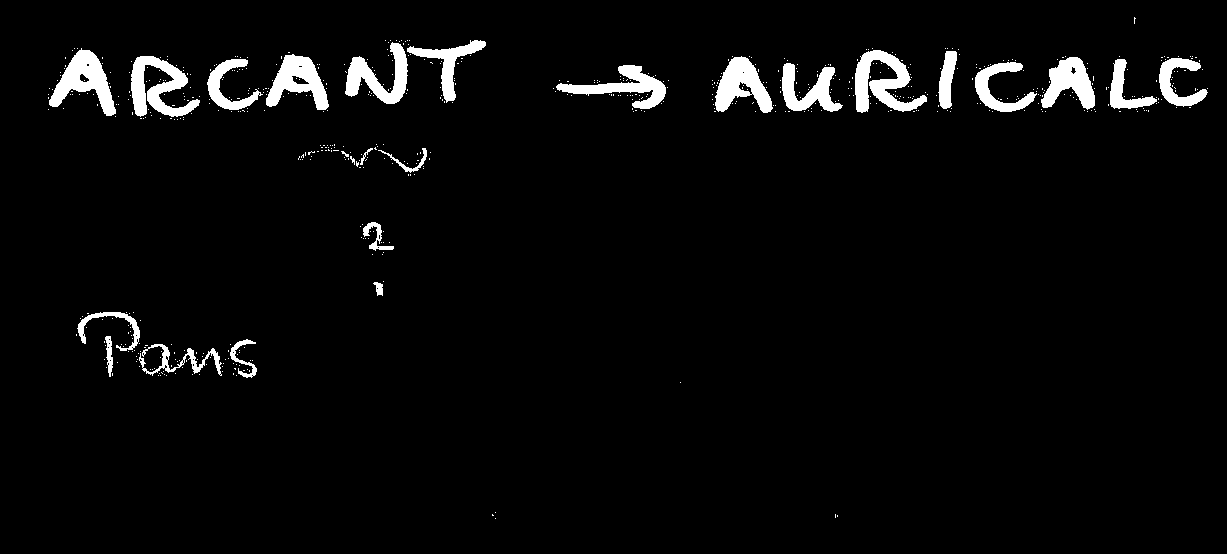 ARCANT → AURICALC
?
Pans